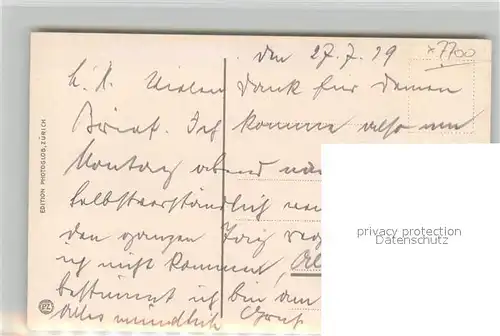 den 27.7.19
x7700
L. A. Vielen Dank für Deinen
Brief. Ich komme also am
Montag abend
selbstverständlich
den ganzen Tag
ich nicht kommen,
bestimmt ich bin dann
Alles mündlich Gruß
EDITION PHOTOGLOB, ZÜRICH
PZ
privacy protection
Datenschutz